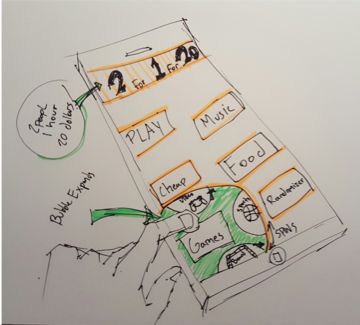 2 for 1 for 20
2 Peopl
1 hour
20 dollars
PLAY
Music
Cheap
Food
Randomizer
Bubble Expands
Games
SPINS